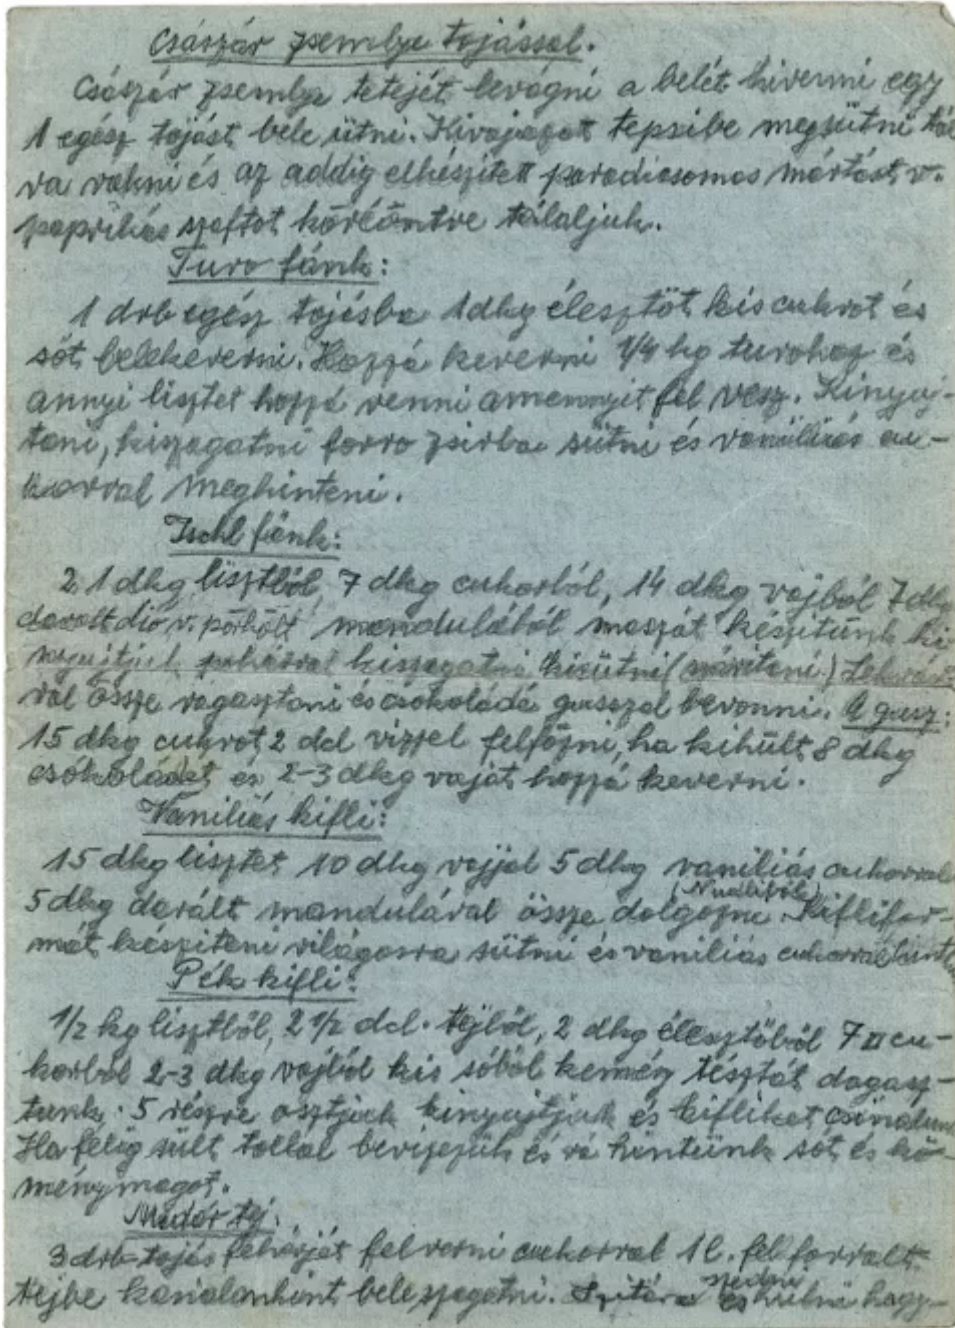 Császár zsemlye tojással.
Császár zsemlye tetejét levágni a belét kivenni egy
1 egész tojást bele ütni. Kivajazot tepsibe megsütni tál
va rakni és az addig elkészitett paradicsomos mártást v.
paprikás szaftot köréöntve tálaljuk.
Turo fánk:
1 drb egész tojásba 1dkg élesztöt kis cukrot és
sót belekeverni. Hozzá keverni 1/4 kg turohoz és
annyi lisztet hozzá venni amennyit fel vesz. Kinyuj-
tani, kiszagatni forro zsirba sütni és vaniliás cu-
korral meghinteni.
Ischl fánk:
21 dkg lisztböl, 7 dkg cukorból, 14 dkg vajból 7 dkg
daralt dió v. pörkölt mandulából maszát készitünk ki
nyujtjuk pohárral kiszagatni kisütni (száritani) Lekvár-
ral össze ragasztani és csokoládé gusszal bevonni. A gusz:
15 dkg cukrot 2 dcl vizzel felfözni, ha kihült 8 dkg
csókoládét és 2-3 dkg vaját hozzá keverni.
Vaniliás kifli:
15 dkg lisztet 10 dkg vajjal 5 dkg vaniliás cukorral
5 dkg darált mandulával össze dolgozni. (Nudliból) Kiflifor-
mát készíteni világosra sütni és vaniliás cukorral hinteni
Pék kifli:
1/2 kg lisztböl, 2 1/2 dcl. tejböl, 2 dkg élesztöböl 7 " cu-
korból 2-3 dkg vajból kis sóból kemény tésztát dagasz-
tunk. 5 részre osztjuk kinyujtjuk és kifliket csinálunk
Ha félig sült tollal bevizezük és rá hintünk sót és kö-
ménymagot.
Madár tej.
3 drb tojás fehérjét felverni cukorral 1 l. fel forralt
tejbe kanalanként beleszagatni. Szitára szedni és hülni hagy-